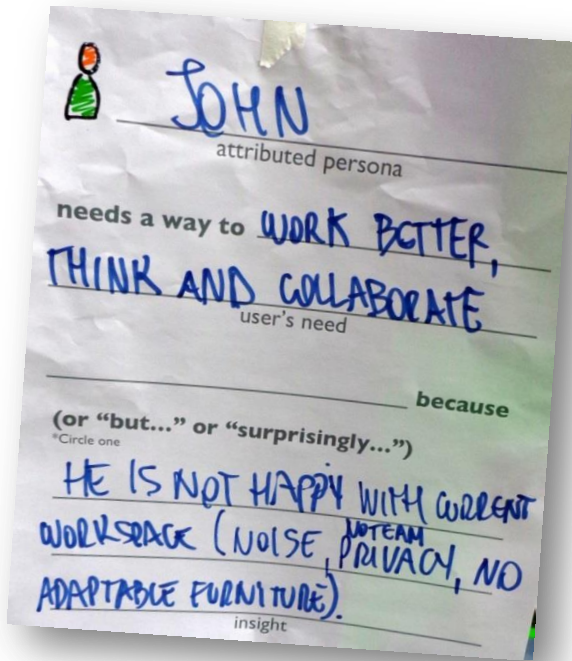 JOHN
attributed persona
needs a way to WORK BETTER,
THINK AND COLLABORATE
user's need
because
(or “but...” or “surprisingly...”)
*Circle one
HE IS NOT HAPPY WITH CURRENT
WORKSPACE (NOISE, NO TEAM PRIVACY, NO
ADAPTABLE FURNITURE).
insight